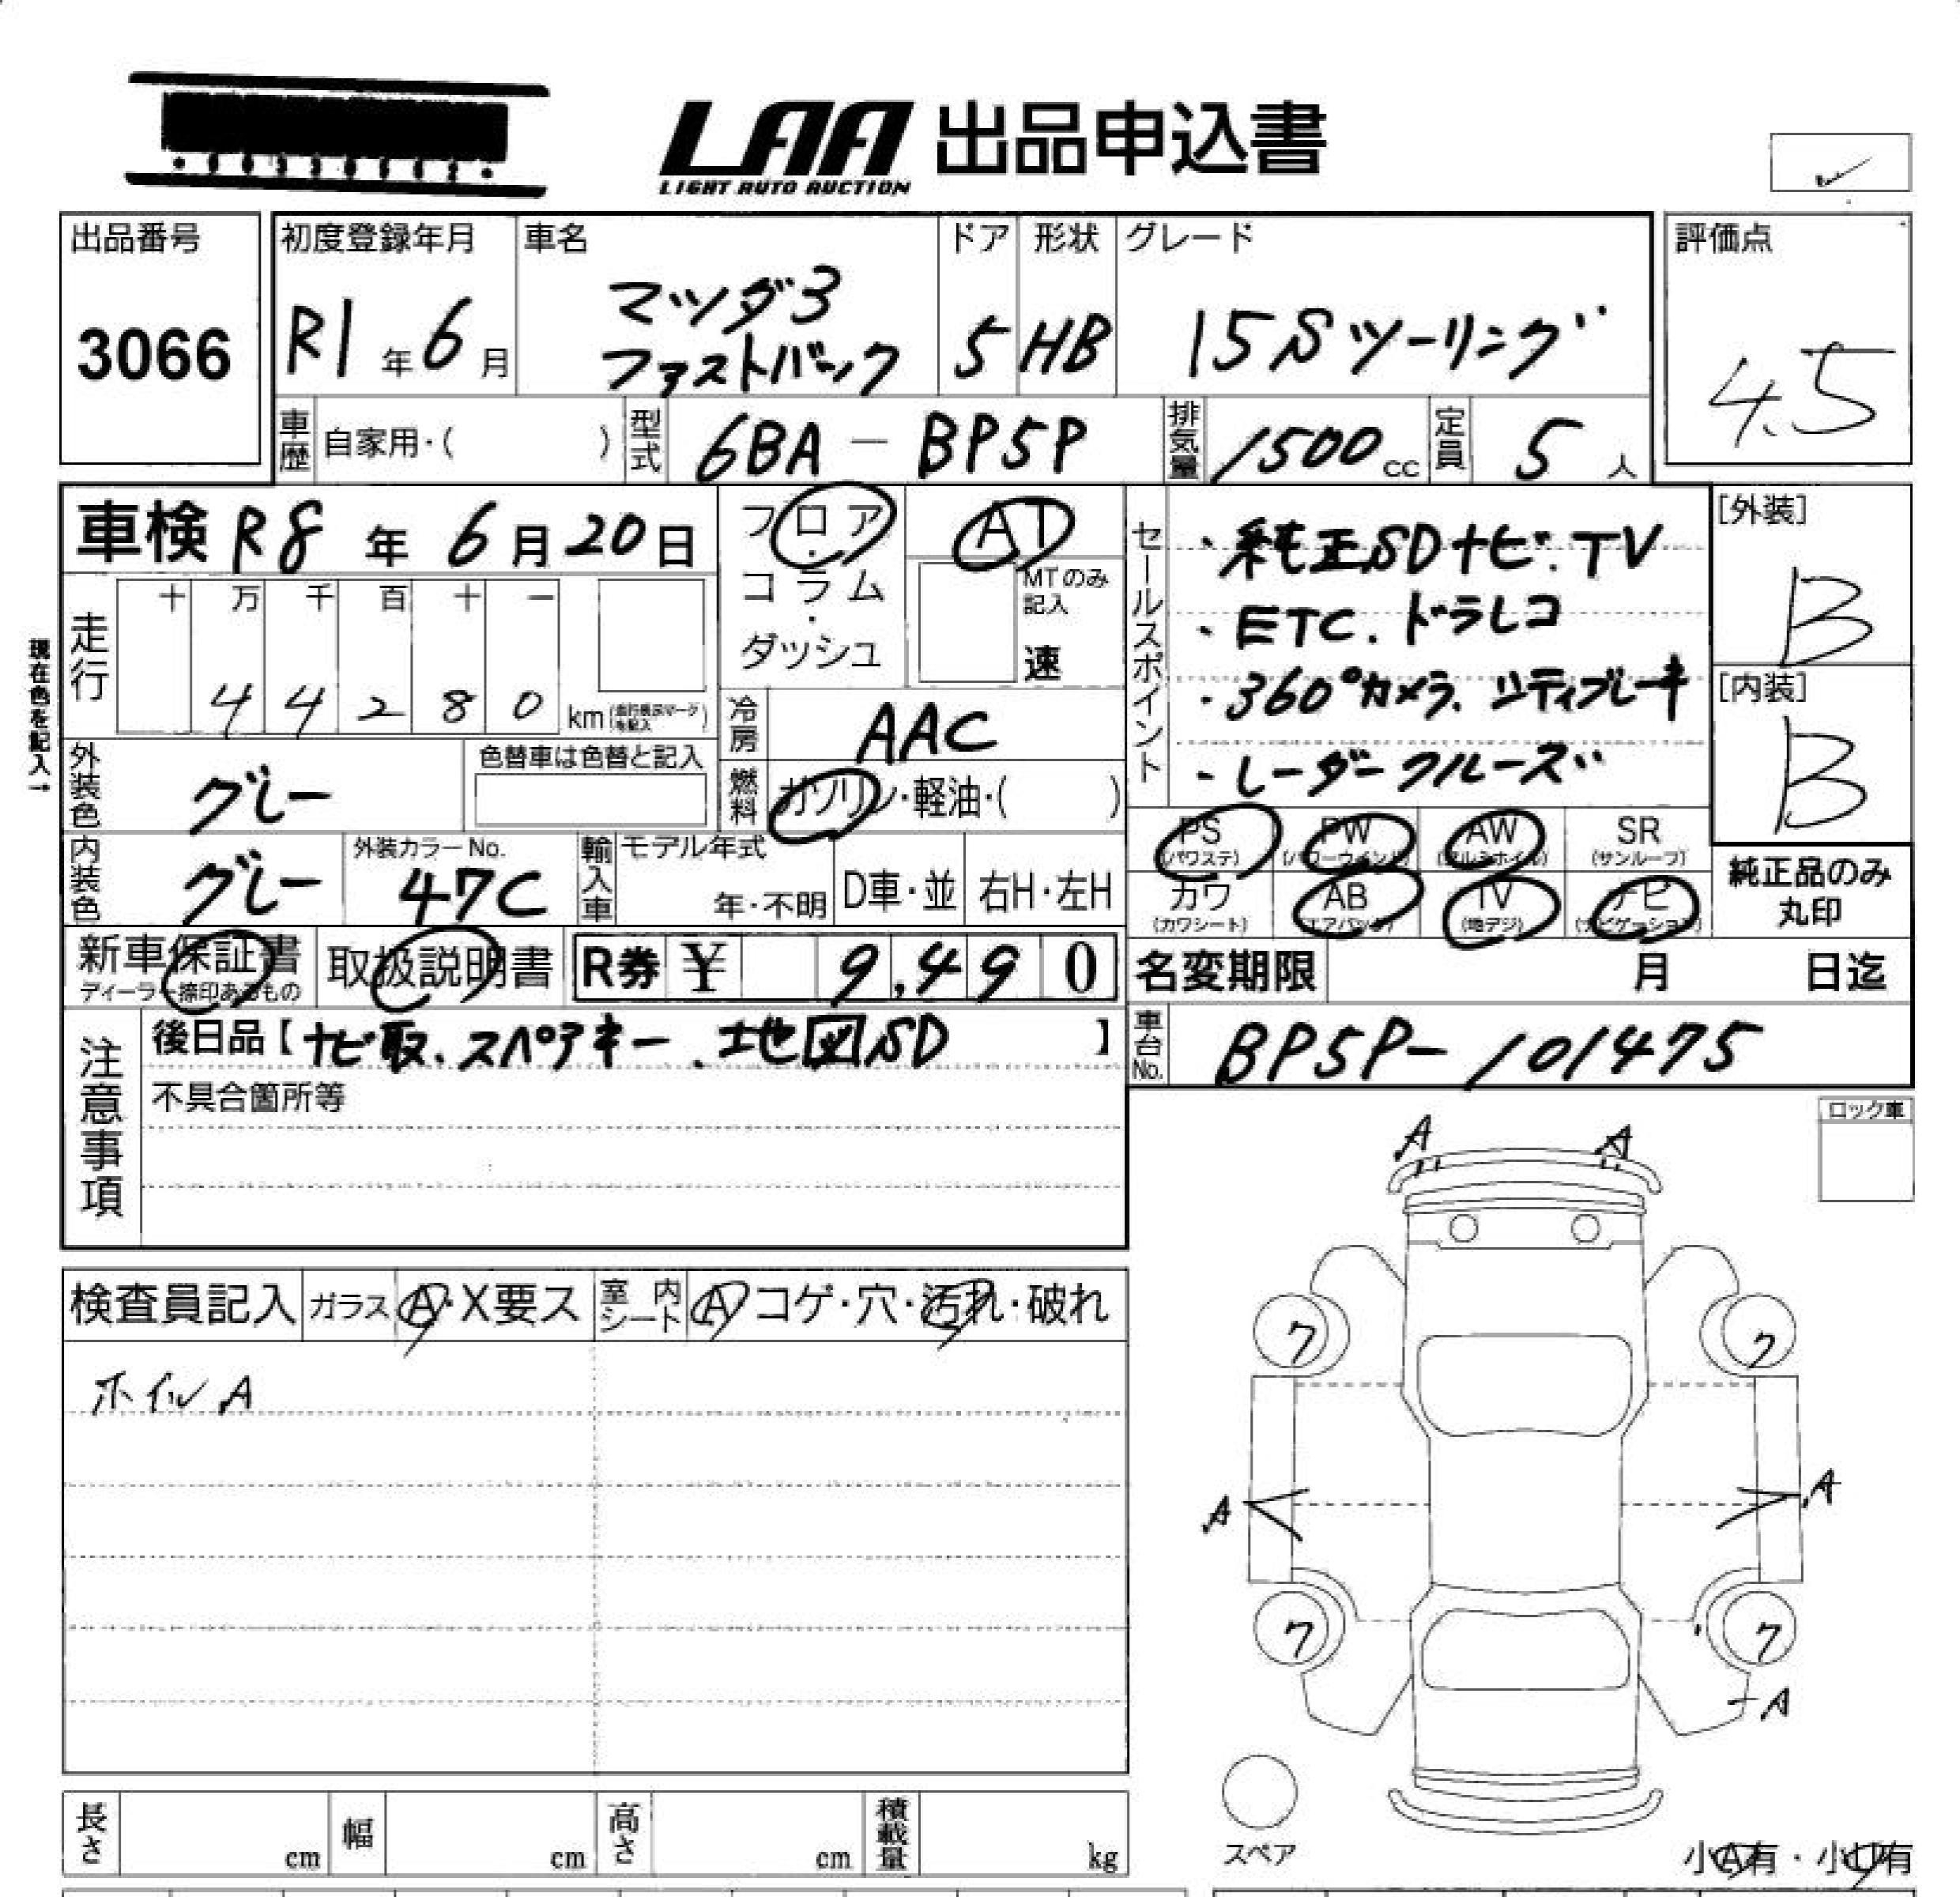 LAA 出品申込書
LIGHT AUTO AUCTION
出品番号
3066
初度登録年月
R1年6月
車名
マツダ3
ファストバック
ドア
5
形状
HB
グレード
15Sツーリング
評価点
4.5
車歴 自家用・( )
型式 6BA - BP5P
排気量 1500cc
定員 5人
車検 R8年6月20日
フロア・コラム・ダッシュ
AT
MTのみ記入
速
走行
十 万 千 百 十 一
4 4 2 8 0 km
現在色を記入→
冷房 AAC
燃料 ガソリン・軽油・( )
外装色 グレー
色替車は色替と記入
内装色 グレー
外装カラーNo.
47C
輸入車
モデル年式
年・不明
D車・並
右H・左H
セールスポイント
・純正SDナビ.TV
・ETC.ドラレコ
・360°カメラ.シティブレーキ
・レーダークルーズ
[外装]
B
[内装]
B
PS (パワステ)
PW (パワーウインド)
AW (アルミホイル)
SR (サンルーフ)
カワ (カワシート)
AB (エアバック)
TV (地デジ)
ナビ (ナビゲーション)
純正品のみ
丸印
新車保証書
ディーラー捺印あるもの
取扱説明書
R券 ¥ 9,490
名変期限 月 日迄
注意事項
後日品【ナビ取.スペアキー.地図SD】
不具合箇所等
車台No. BP5P-101475
ロック車
A A
検査員記入
ガラス A・X要ス
室内シート A コゲ・穴・汚れ・破れ
ホイルA
ク ク
A A
ク ク
A
スペア
小A有・小U有
長さ cm
幅 cm
高さ cm
積載量 kg